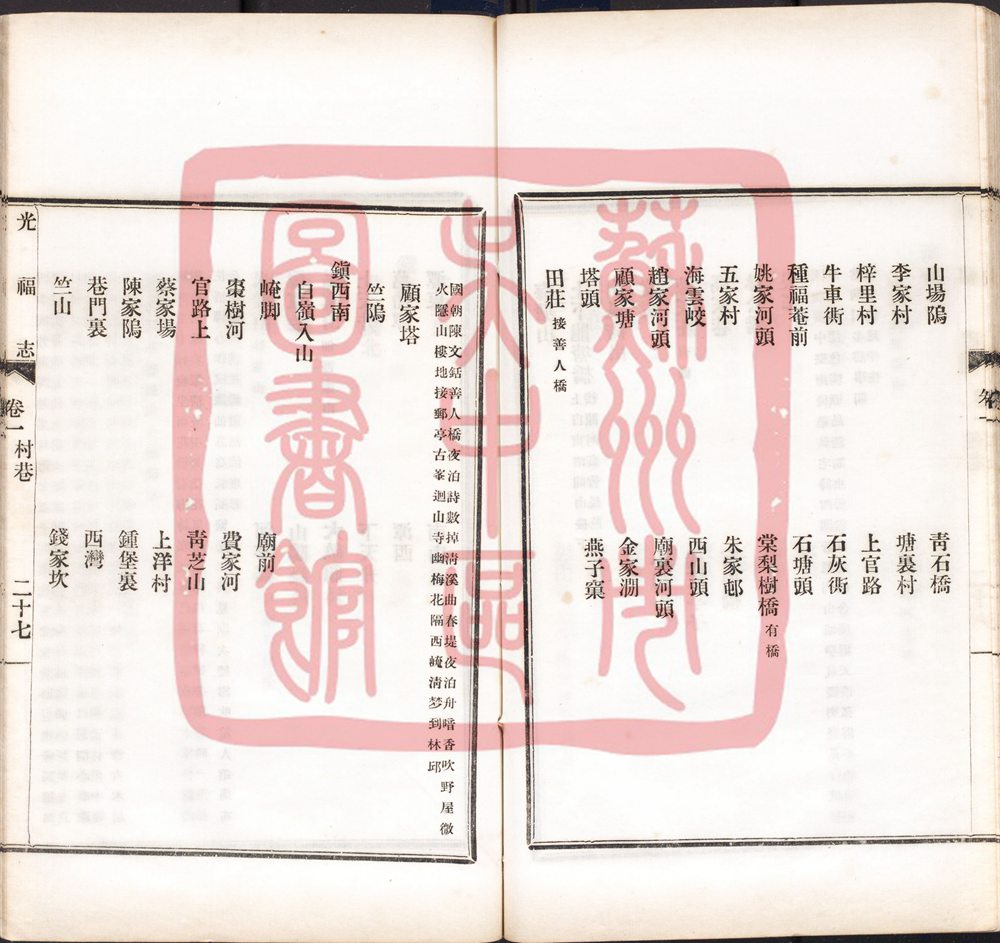 山場隖 青石橋
李家村 塘裏村
梓里村 上官路
牛車衖 石灰衖
種福菴前 石塘頭
姚家河頭 棠梨樹橋有橋
五家村 朱家邨
海雲峧 西山頭
趙家河頭 廟裏河頭
顧家塘 金家澗
塔頭 燕子窠
田莊接善人橋
國朝陳文銛善人橋夜泊詩數掉淸溪曲春堤夜泊舟暗香吹野屋微
火隱山樓地接郵亭古峯迴山寺幽梅花隔西崦淸梦到林邱
顧家塔
竺隖
鎭西南
白嶺入山
崦脚 廟前
棗樹河 費家河
官路上 靑芝山
蔡家場 上洋村
陳家隖 鍾堡裏
巷門裏 西灣
竺山 錢家坎
光福志
卷一 村巷
二十七
蘇州市
吳中區
圖書館